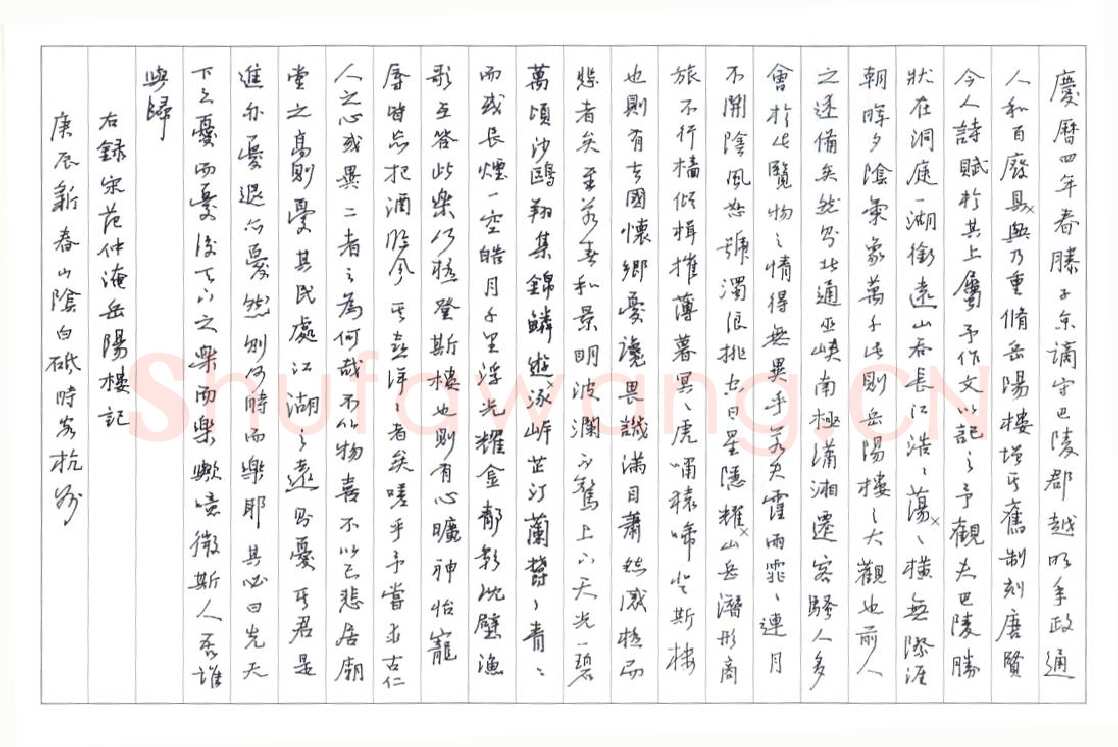 慶曆四年春滕子京謫守巴陵郡越明年政通
人和百廢具興乃重脩岳陽樓增其舊制刻唐賢
今人詩賦於其上屬予作文以記之予觀夫巴陵勝
狀在洞庭一湖銜遠山吞長江浩〻蕩〻橫無際涯
朝暉夕陰氣象萬千此則岳陽樓之大觀也前人
之述備矣然則北通巫峽南極瀟湘遷客騷人多
會於此覽物之情得無異乎若夫霪雨霏〻連月
不開陰風怒號濁浪排空日星隱耀山岳潛形商
旅不行檣傾楫摧薄暮冥〻虎嘯猿啼登斯樓
也則有去國懷鄉憂讒畏譏滿目蕭然感極而
悲者矣至若春和景明波瀾不驚上下天光一碧
萬頃沙鷗翔集錦鱗遊泳岸芷汀蘭鬱〻青〻
而或長煙一空皓月千里浮光耀金靜影沈璧漁
歌互答此樂何極登斯樓也則有心曠神怡寵
辱皆忘把酒臨風其喜洋〻者矣嗟乎予嘗求古仁
人之心或異二者之為何哉不以物喜不以己悲居廟
堂之高則憂其民處江湖之遠則憂其君是
進亦憂退亦憂然則何時而樂耶其必曰先天
下之憂而憂後天下之樂而樂歟噫微斯人吾誰
與歸
右錄宋范仲淹岳陽樓記
庚辰新春山陰白砥時客杭州
Shufawang.CN